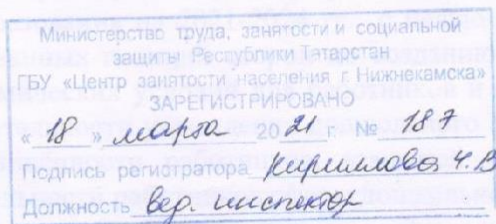 Министерство труда, занятости и социальной
защиты Республики Татарстан
ГБУ «Центр занятости населения г. Нижнекамска»
ЗАРЕГИСТРИРОВАНО
«18» марта 2021 г. № 187
Подпись регистратора Кириллова Ч.В
Должность вед. инспектор